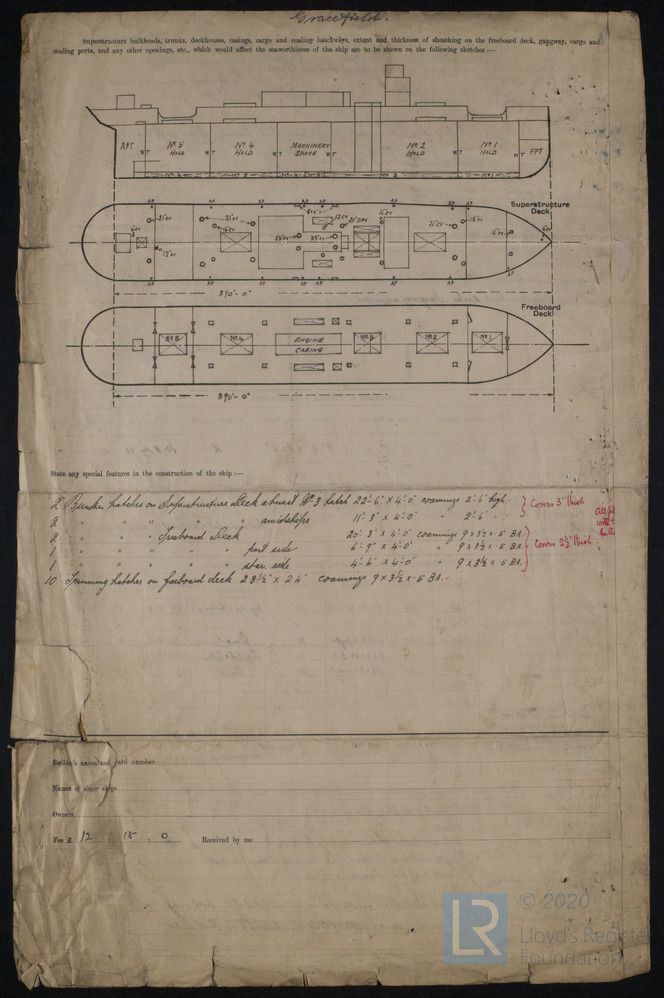 Gracefield.
Superstructure bulkheads, trunks, deckhouses, casings, cargo and coaling hatchways, extent and thickness of sheathing on the freeboard deck, gangway, cargo and
coaling ports, and any other openings, etc., which would affect the seaworthiness of the ship are to be shown on the following sketches:—
A.P.T. Nº 5 HOLD Nº 4 HOLD MACHINERY SPACE Nº 2 HOLD Nº 1 HOLD F.P.T.
WT WT WT WT WT WT
Superstructure
Deck
390'-0"
Freeboard
Deck
Nº 5 Nº 4 ENGINE CASING Nº 3 Nº 2 Nº 1
390'-0"
State any special features in the construction of the ship:—
2 Bunker hatches on Superstructure Deck abreast Nº 3 hatch 22'-6" x 4'-0" coamings 2'-6" high. Covers 3" thick
2 " " " " " amidships 11'-3" x 4'-0" " 2'-6"
2 " " " Freeboard Deck 20'-3" x 4'-0" coamings 9 x 3½ x .5 BA.
1 " " " " " port side 6'-9" x 4'-0" " 9 x 3½ x .5 BA. Covers 2½" thick
1 " " " " " star. side 4'-6" x 4'-0" " 9 x 3½ x .5 BA.
10 Trimming hatches on freeboard deck 28½" x 24" coamings 9 x 3½ x .5 BA.
Builder's name and yard number
Names of sister ships
Owners
Fee £ 12 : 15 : 0 Received by me
LR
© 2020
Lloyd's Register
Foundation